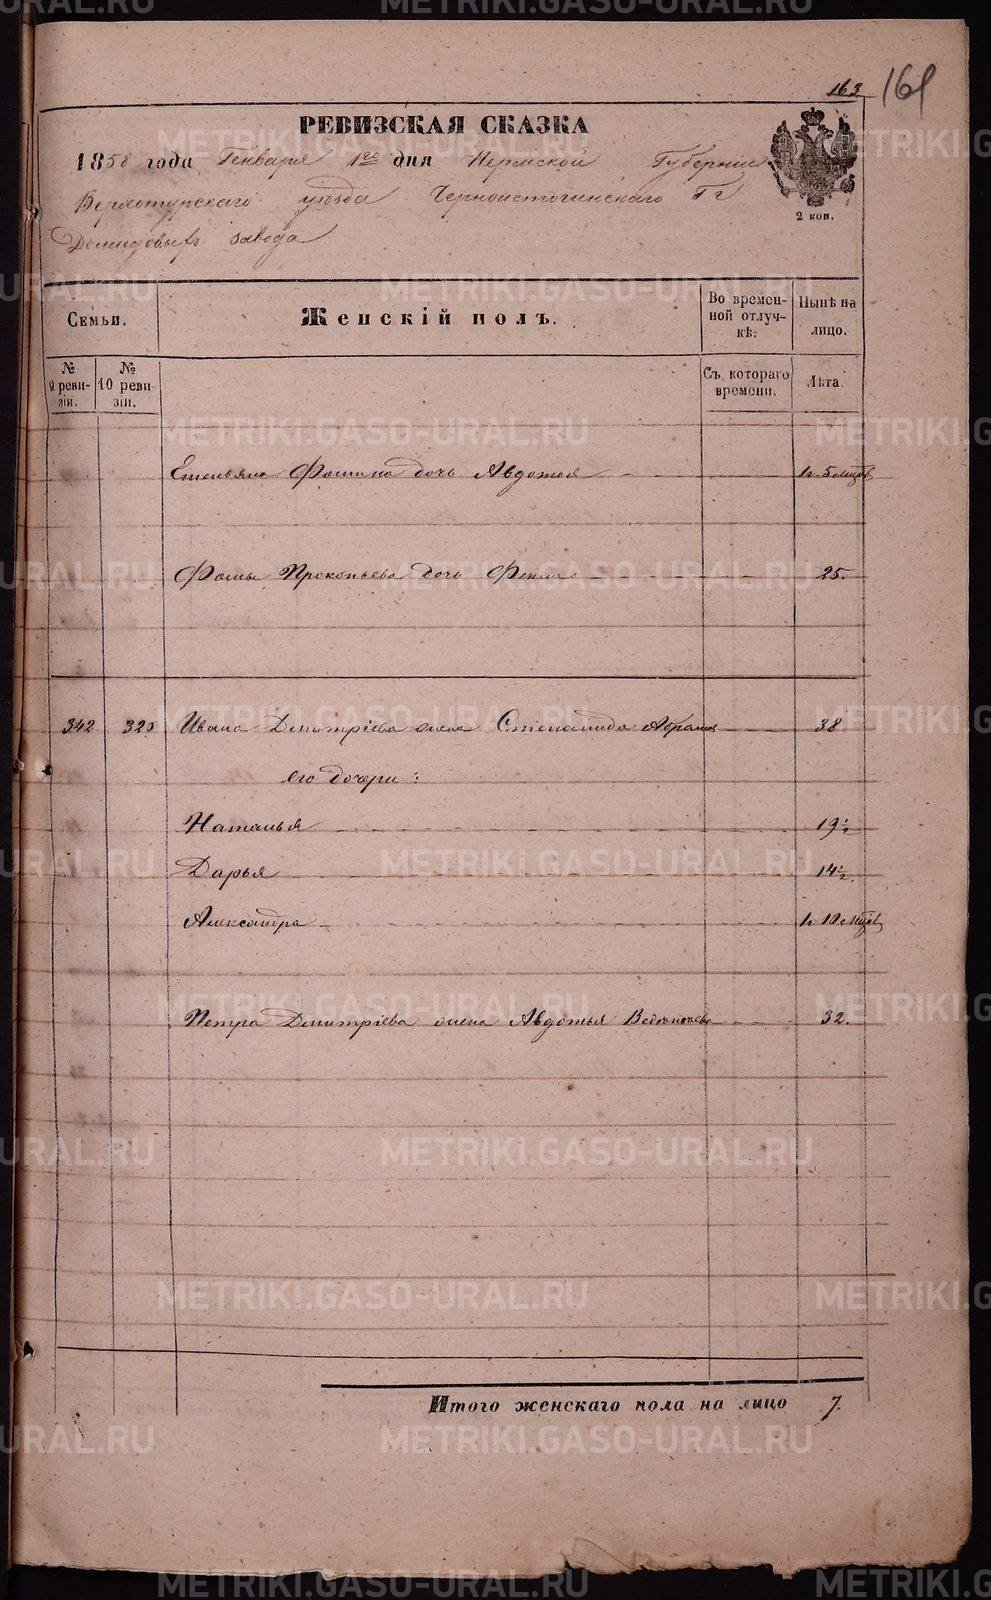 163 161
РЕВИЗСКАЯ СКАЗКА
1858 года Генваря 1го дня Пермской Губернии
Верхотурскаго уезда Черноисточинскаго Гг
Демидовыхъ завода
2 коп.
Семьи.
Женскій полъ.
Во времен-
ной отлуч-
кѣ.
Нынѣ на
лицо.
№
9 реви-
зіи.
№
10 реви-
зіи.
Съ котораго
времени.
Лѣта.
Емельяна Фомина дочь Авдотья 1 г. 5 мцов
Фомы Прокопьева дочь 25.
342 320 Ивана Дмитріева жена Степанида Абрамов 38
его дочери:
Наталья 19½
Дарья 14½.
Александра 1 г 10 мцов
Петра Дмитріева жена Авдотья 32.
Итого женскаго пола на лицо 7.
METRIKI.GASO-URAL.RU